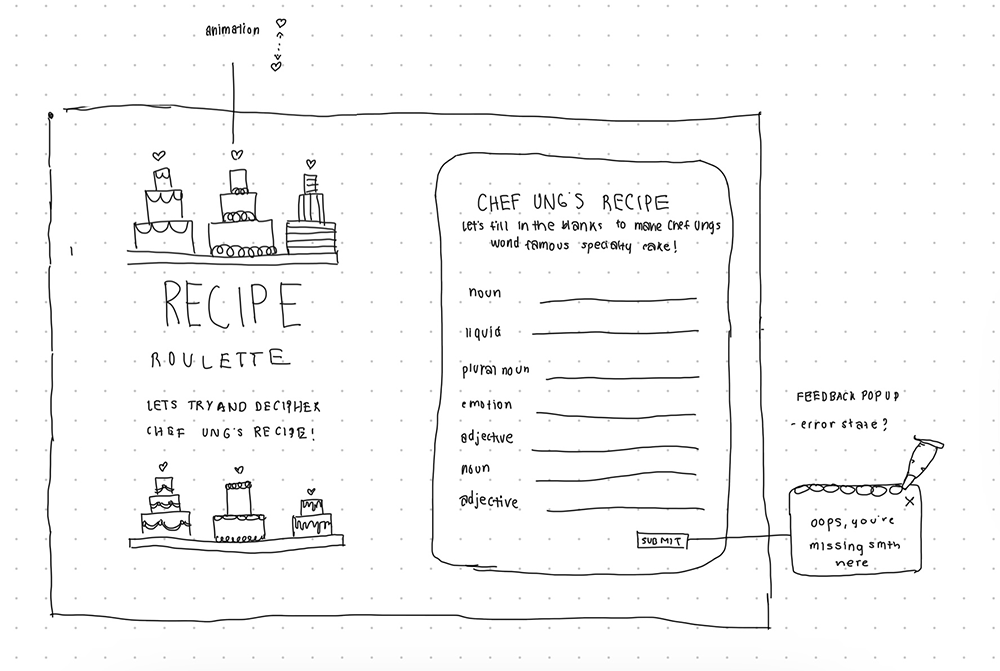 animation
RECIPE
ROULETTE
LETS TRY AND DECIPHER
CHEF UNG'S RECIPE!
CHEF UNG'S RECIPE
Let's fill in the blanks to make Chef Ungs
world famous specialty cake!
noun
liquid
plural noun
emotion
adjective
noun
adjective
SUBMIT
FEEDBACK POP UP
- error state?
X
oops, you're
missing smth
here